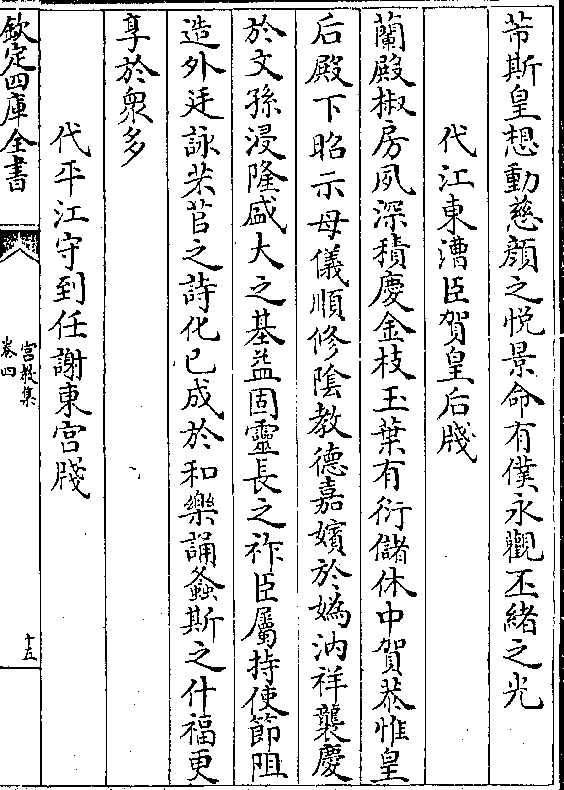 芾斯皇想動慈顔之悦景命有僕永觀丕緒之光
代江東漕臣賀皇后牋
蘭殿椒房夙深積慶金枝玉葉有衍儲休中賀恭惟皇
后殿下昭示母儀順修陰教德嘉嬪於媯汭祥襲慶
於文孫浸隆盛大之基益固靈長之祚臣屬持使節阻
造外廷詠芣苢之詩化已成於和樂誦螽斯之什福更
享於衆多
代平江守到任謝東宮牋
欽定四庫全書
宮教集
卷四
十五